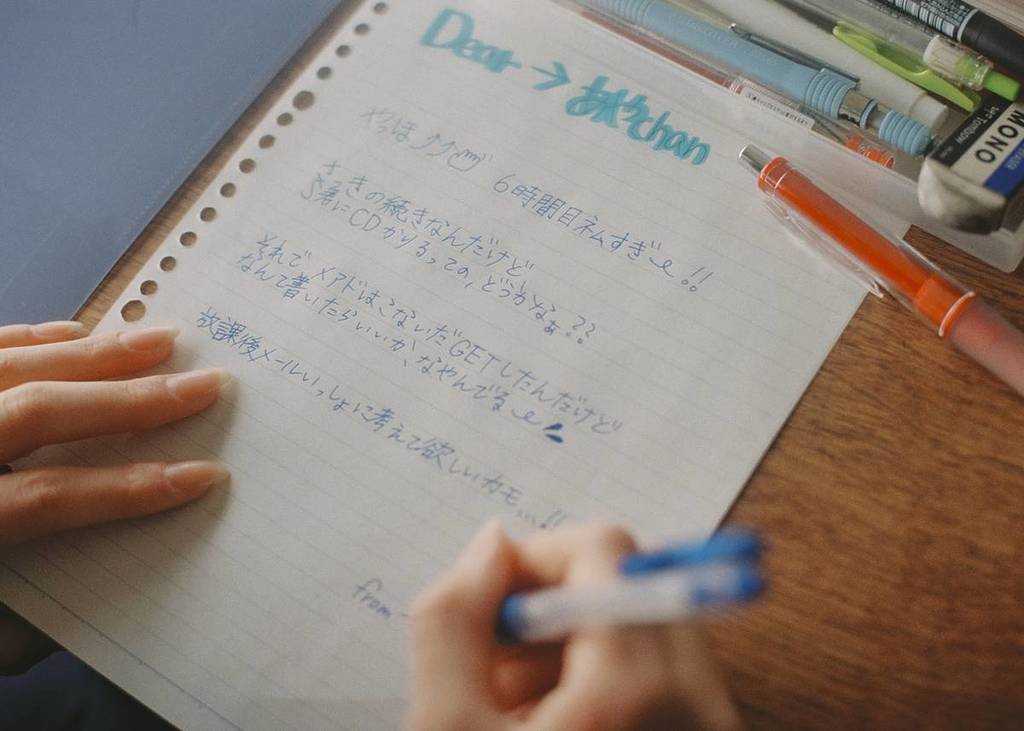 Dear→あやchan
やっほククッ 6時間目ネムすぎ〜!!
さっきの続きなんだけど
S君にCDかりるっての,どうかなぁ??
それで メアドは、こないだGETしたんだけど
なんて書いたらいいか、なやんでる〜
放課後メールいっしょに考えて欲しいカモ...!!
from
MONO
Tombow